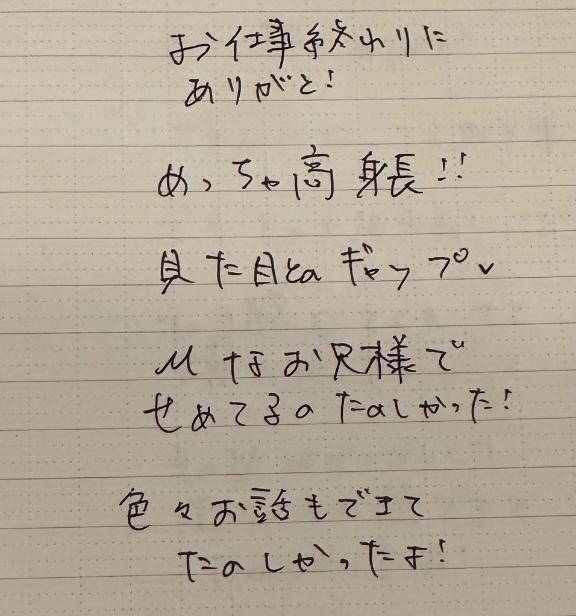 お仕事終わりに
ありがと!
めっちゃ高身長!!
見た目とのギャップ♥
Mなお兄様で
せめてるのたのしかった!
色々お話もできて
たのしかったよ!